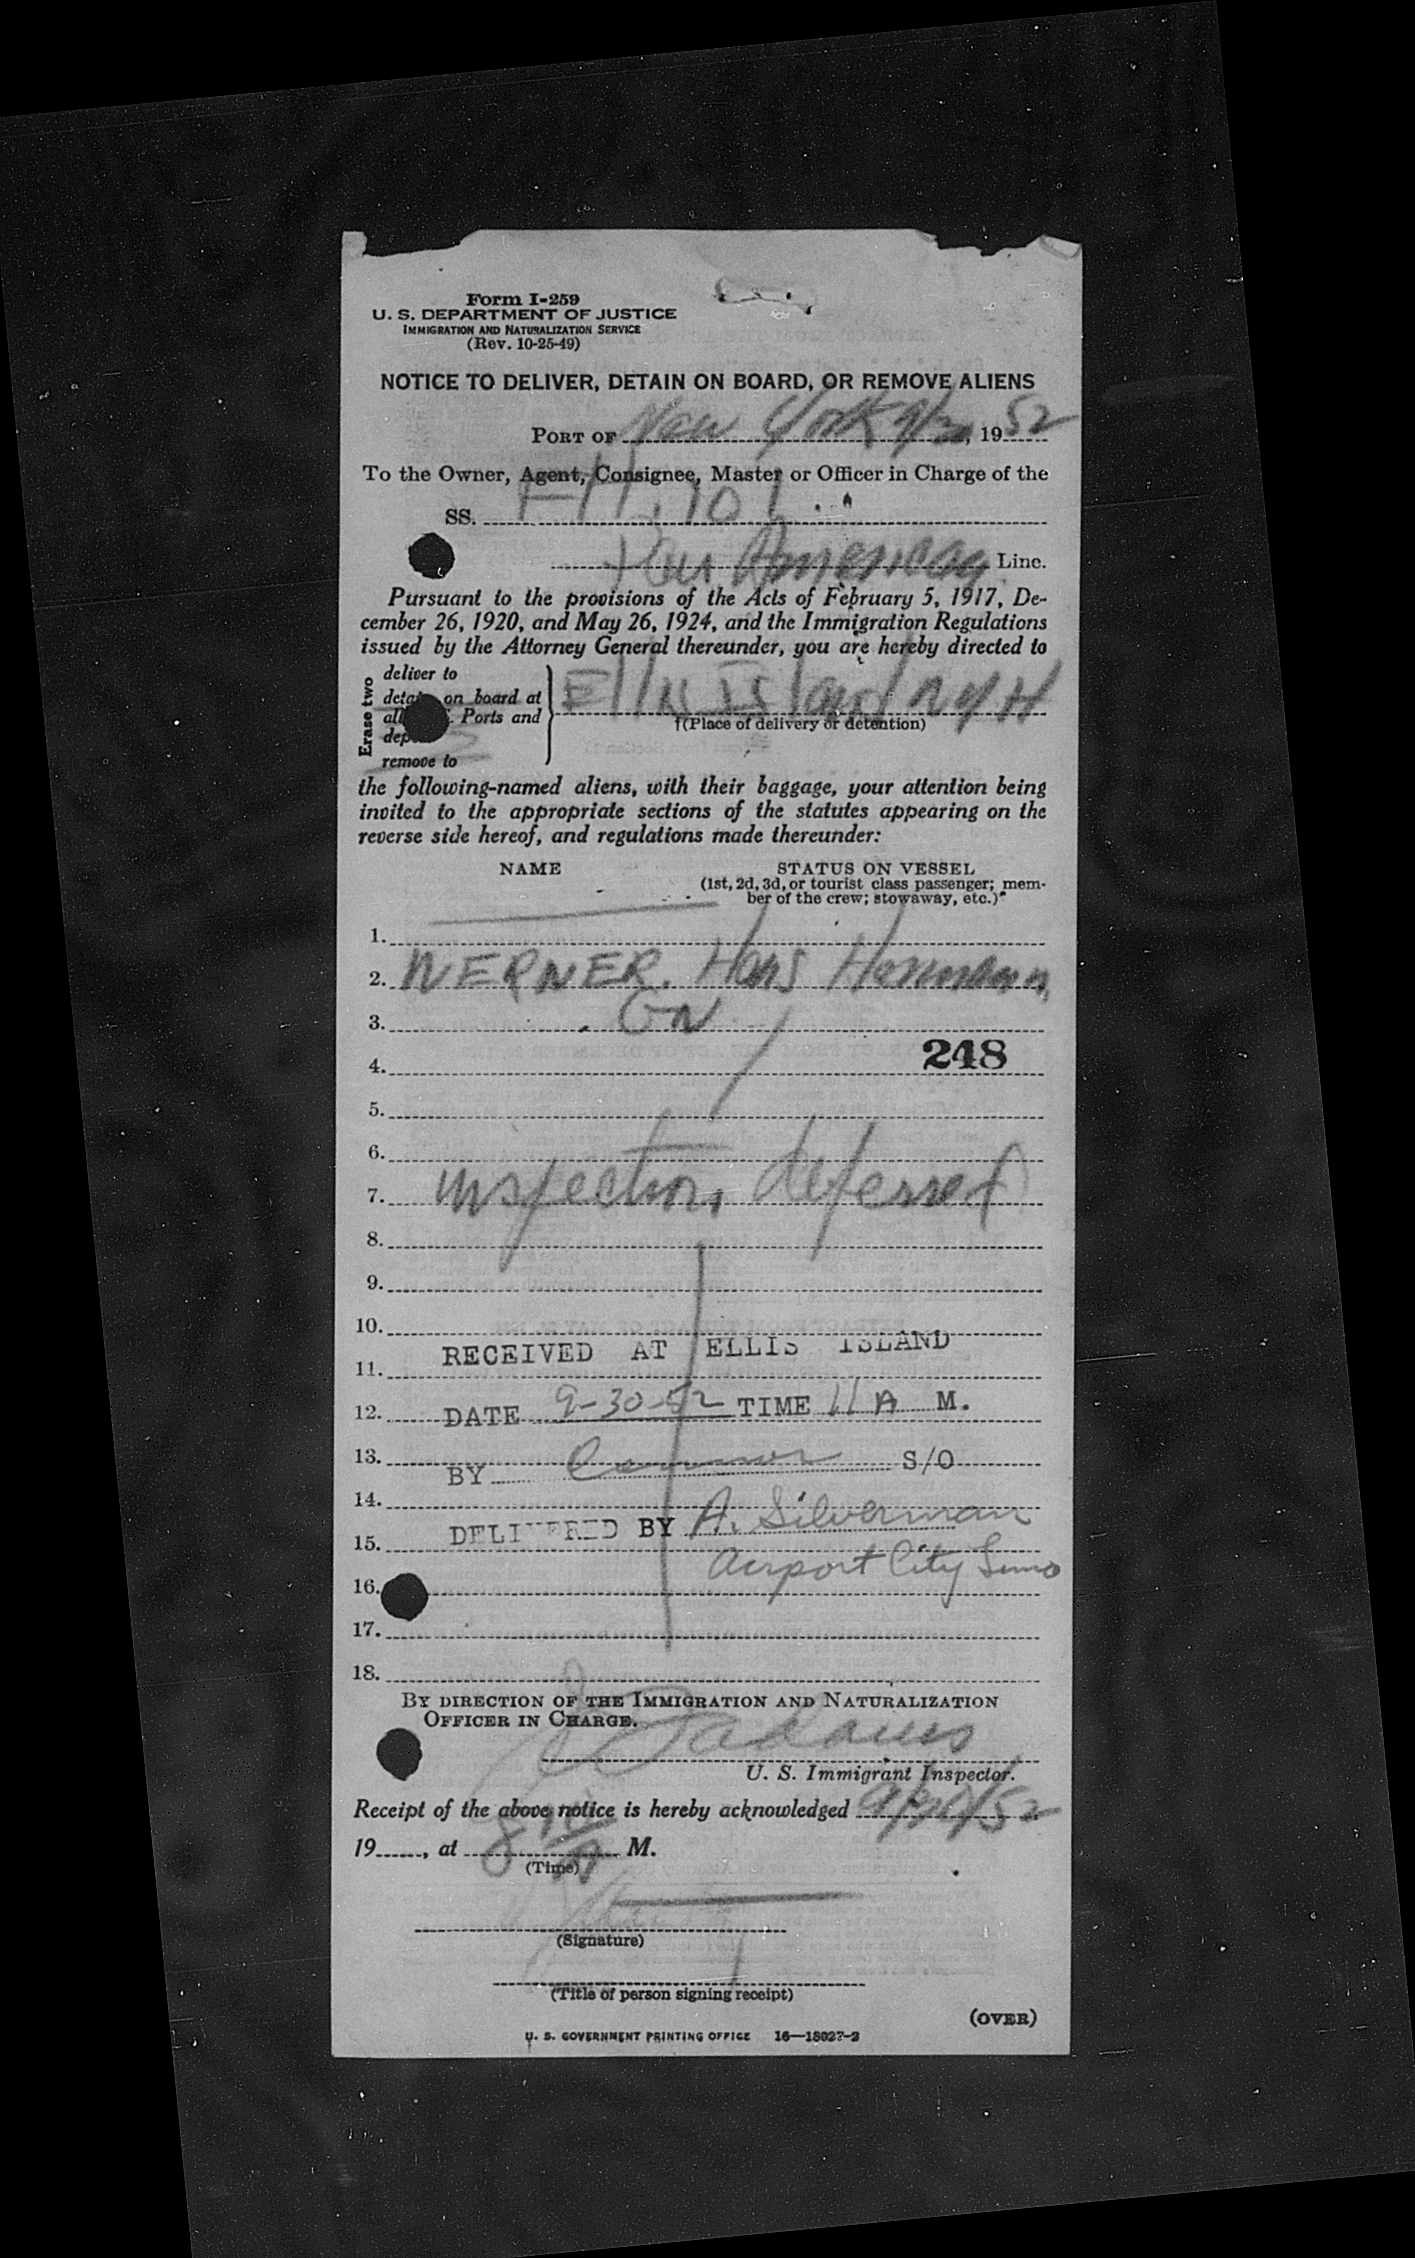 Form I-259
U. S. DEPARTMENT OF JUSTICE
IMMIGRATION AND NATURALIZATION SERVICE
(Rev. 10-25-49)
NOTICE TO DELIVER, DETAIN ON BOARD, OR REMOVE ALIENS
PORT OF New York 9/30, 1952
To the Owner, Agent, Consignee, Master or Officer in Charge of the
SS. Flt. 101
Pan American Line.
Pursuant to the provisions of the Acts of February 5, 1917, De-
cember 26, 1920, and May 26, 1924, and the Immigration Regulations
issued by the Attorney General thereunder, you are hereby directed to
Erase two
deliver to
on board at
Ports and
remove to
Ellis Island NYH
†(Place of delivery or detention)
the following-named aliens, with their baggage, your attention being
invited to the appropriate sections of the statutes appearing on the
reverse side hereof, and regulations made thereunder:
NAME STATUS ON VESSEL
(1st, 2d, 3d, or tourist class passenger; mem-
ber of the crew; stowaway, etc.)*
1.
2. WERNER, Hans Hermann
3. GN
248
4.
5.
6.
7. inspection deferred
8.
9.
10.
RECEIVED AT ELLIS ISLAND
11.
12. DATE 9-30-52 TIME 11 A M.
13.
BY S/O
14.
DELIVERED BY A. Silverman
15.
Airport City Limo
16.
17.
18.
BY DIRECTION OF THE IMMIGRATION AND NATURALIZATION
OFFICER IN CHARGE.
Adams
U. S. Immigrant Inspector.
Receipt of the above notice is hereby acknowledged 9/30/52
19......, at 8 10 A M.
(Time)
(Signature)
(Title of person signing receipt)
(OVER)
U. S. GOVERNMENT PRINTING OFFICE 16—18027-2